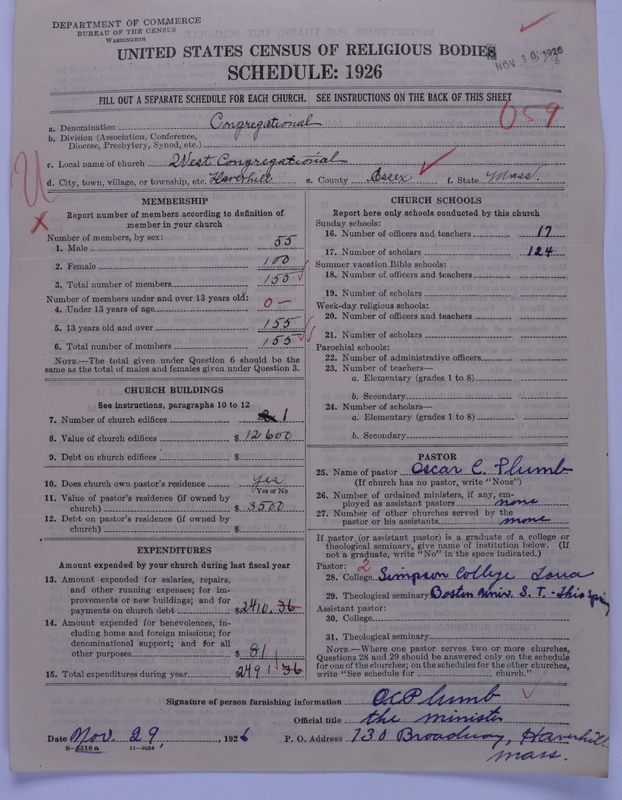 DEPARTMENT OF COMMERCE
BUREAU OF THE CENSUS
WASHINGTON
UNITED STATES CENSUS OF RELIGIOUS BODIES
NOV 30, 1926
SCHEDULE: 1926
FILL OUT A SEPARATE SCHEDULE FOR EACH CHURCH. SEE INSTRUCTIONS ON THE BACK OF THIS SHEET
659
a. Denomination Congregational
b. Division (Association, Conference, Diocese, Presbytery, Synod, etc.)
c. Local name of church West Congregational
d. City, town, village, or township, etc. Haverhill e. County Essex f. State Mass.
MEMBERSHIP
Report number of members according to definition of
member in your church
Number of members, by sex:
1. Male 55
2. Female 100
3. Total number of members 155
Number of members under and over 13 years old:
4. Under 13 years of age 0 –
5. 13 years old and over 155
6. Total number of members 155
NOTE.—The total given under Question 6 should be
same as the total of males and females given under Question 3.
CHURCH BUILDINGS
See instructions, paragraphs 10 to 12
7. Number of church edifices 1
8. Value of church edifices $ 12600
9. Debt on church edifices $
10. Does church own pastor's residence yes
Yes or No
11. Value of pastor's residence (if owned by
church) $ 3500
12. Debt on pastor's residence (if owned by
church) $
EXPENDITURES
Amount expended by your church during last fiscal year
13. Amount expended for salaries, repairs,
and other running expenses; for im-
provements or new buildings; and for
payments on church debt $2410.36
14. Amount expended for benevolences, in-
cluding home and foreign missions; for
denominational support; and for all
other purposes $ 81
15. Total expenditures during year $2491 36
CHURCH SCHOOLS
Report here only schools conducted by this church
Sunday schools:
16. Number of officers and teachers 17
17. Number of scholars 124
Summer vacation Bible schools:
18. Number of officers and teachers
19. Number of scholars
Week-day religious schools:
20. Number of officers and teachers
21. Number of scholars
Parochial schools:
22. Number of administrative officers
23. Number of teachers—
a. Elementary (grades 1 to 8)
b. Secondary
24. Number of scholars—
a. Elementary (grades 1 to 8)
b. Secondary
PASTOR
25. Name of pastor Oscar C. Plumb
(If church has no pastor, write "None")
26. Number of ordained ministers, if any, em-
ployed as assistant pastors none
27. Number of other churches served by the
pastor or his assistants none
If pastor (or assistant pastor) is a graduate of a college or
theological seminary, give name of institution below. (If
not a graduate, write "No" in the space indicated.)
Pastor: 2
28. College Simpson College Iowa
29. Theological seminary Boston Univ. S. T. - this spring
Assistant pastor:
30. College
31. Theological seminary
NOTE.—Where one pastor serves two or more churches,
Questions 28 and 29 should be answered only on the schedule
for one of the churches; on the schedules for the other churches,
write "See schedule for church."
Signature of person furnishing information O C Plumb
Official title the minister
Date Nov. 29, 1926 P. O. Address 730 Broadway, Haverhill
Mass.
8—5518a 11—9084